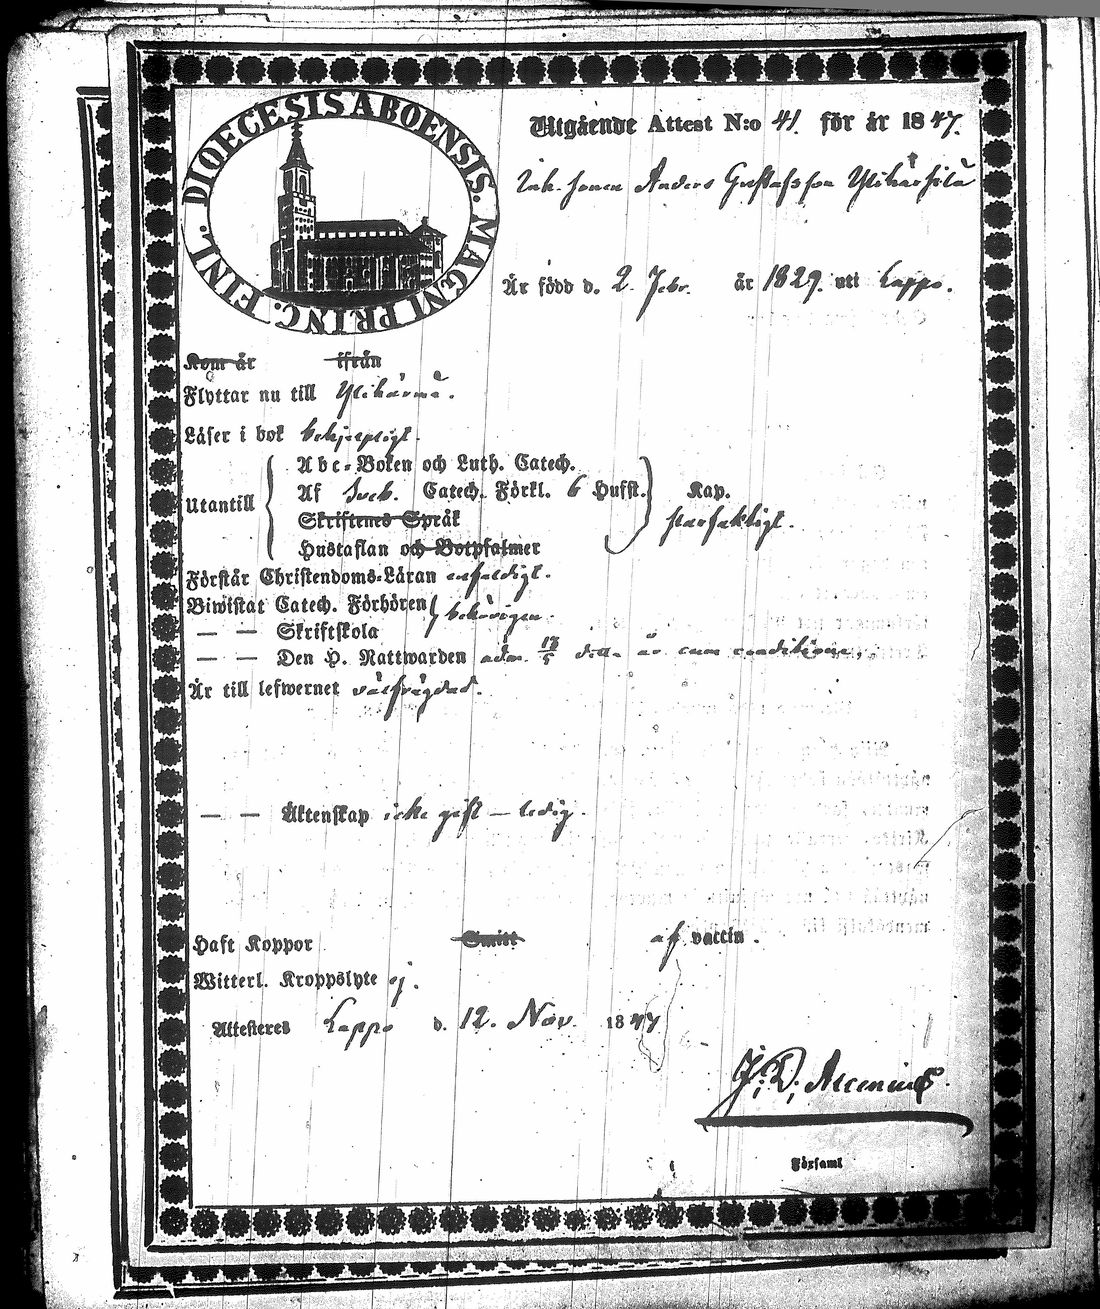 DIOECESIS ABOENSIS. MAGNI PRINC. FINL.
Utgående Attest N:o 41. för år 1847.
Inh. sonen Anders Gustafsson
Är född d. 2. Febr. år 1829. uti Lappo.
Kom år ifrån
Flyttar nu till Ylihärmä.
Läser i bok behjelpligt.
Utantill
Abc-Boken och Luth. Catech.
Af Sveb. Catech. Förkl. 6 Hufst. Kap.
Skriftenes Språk
Hustaflan och Botpsalmer
Förstår Christendoms-Läran enfaldigt.
Biwistat Catech. Förhören behörigen
— — Skriftskola
— — Den H. Nattwarden adm. är cum conditione,
Är till lefwernet välfrägdad.
— — Äktenskap icke gift — ledig.
Haft Koppor Smitt af vaccin.
Witterl. Kroppslyte ej.
Attesteres Lappo d. 12. Nov. 1847
J. D. Alcenius.
Församl